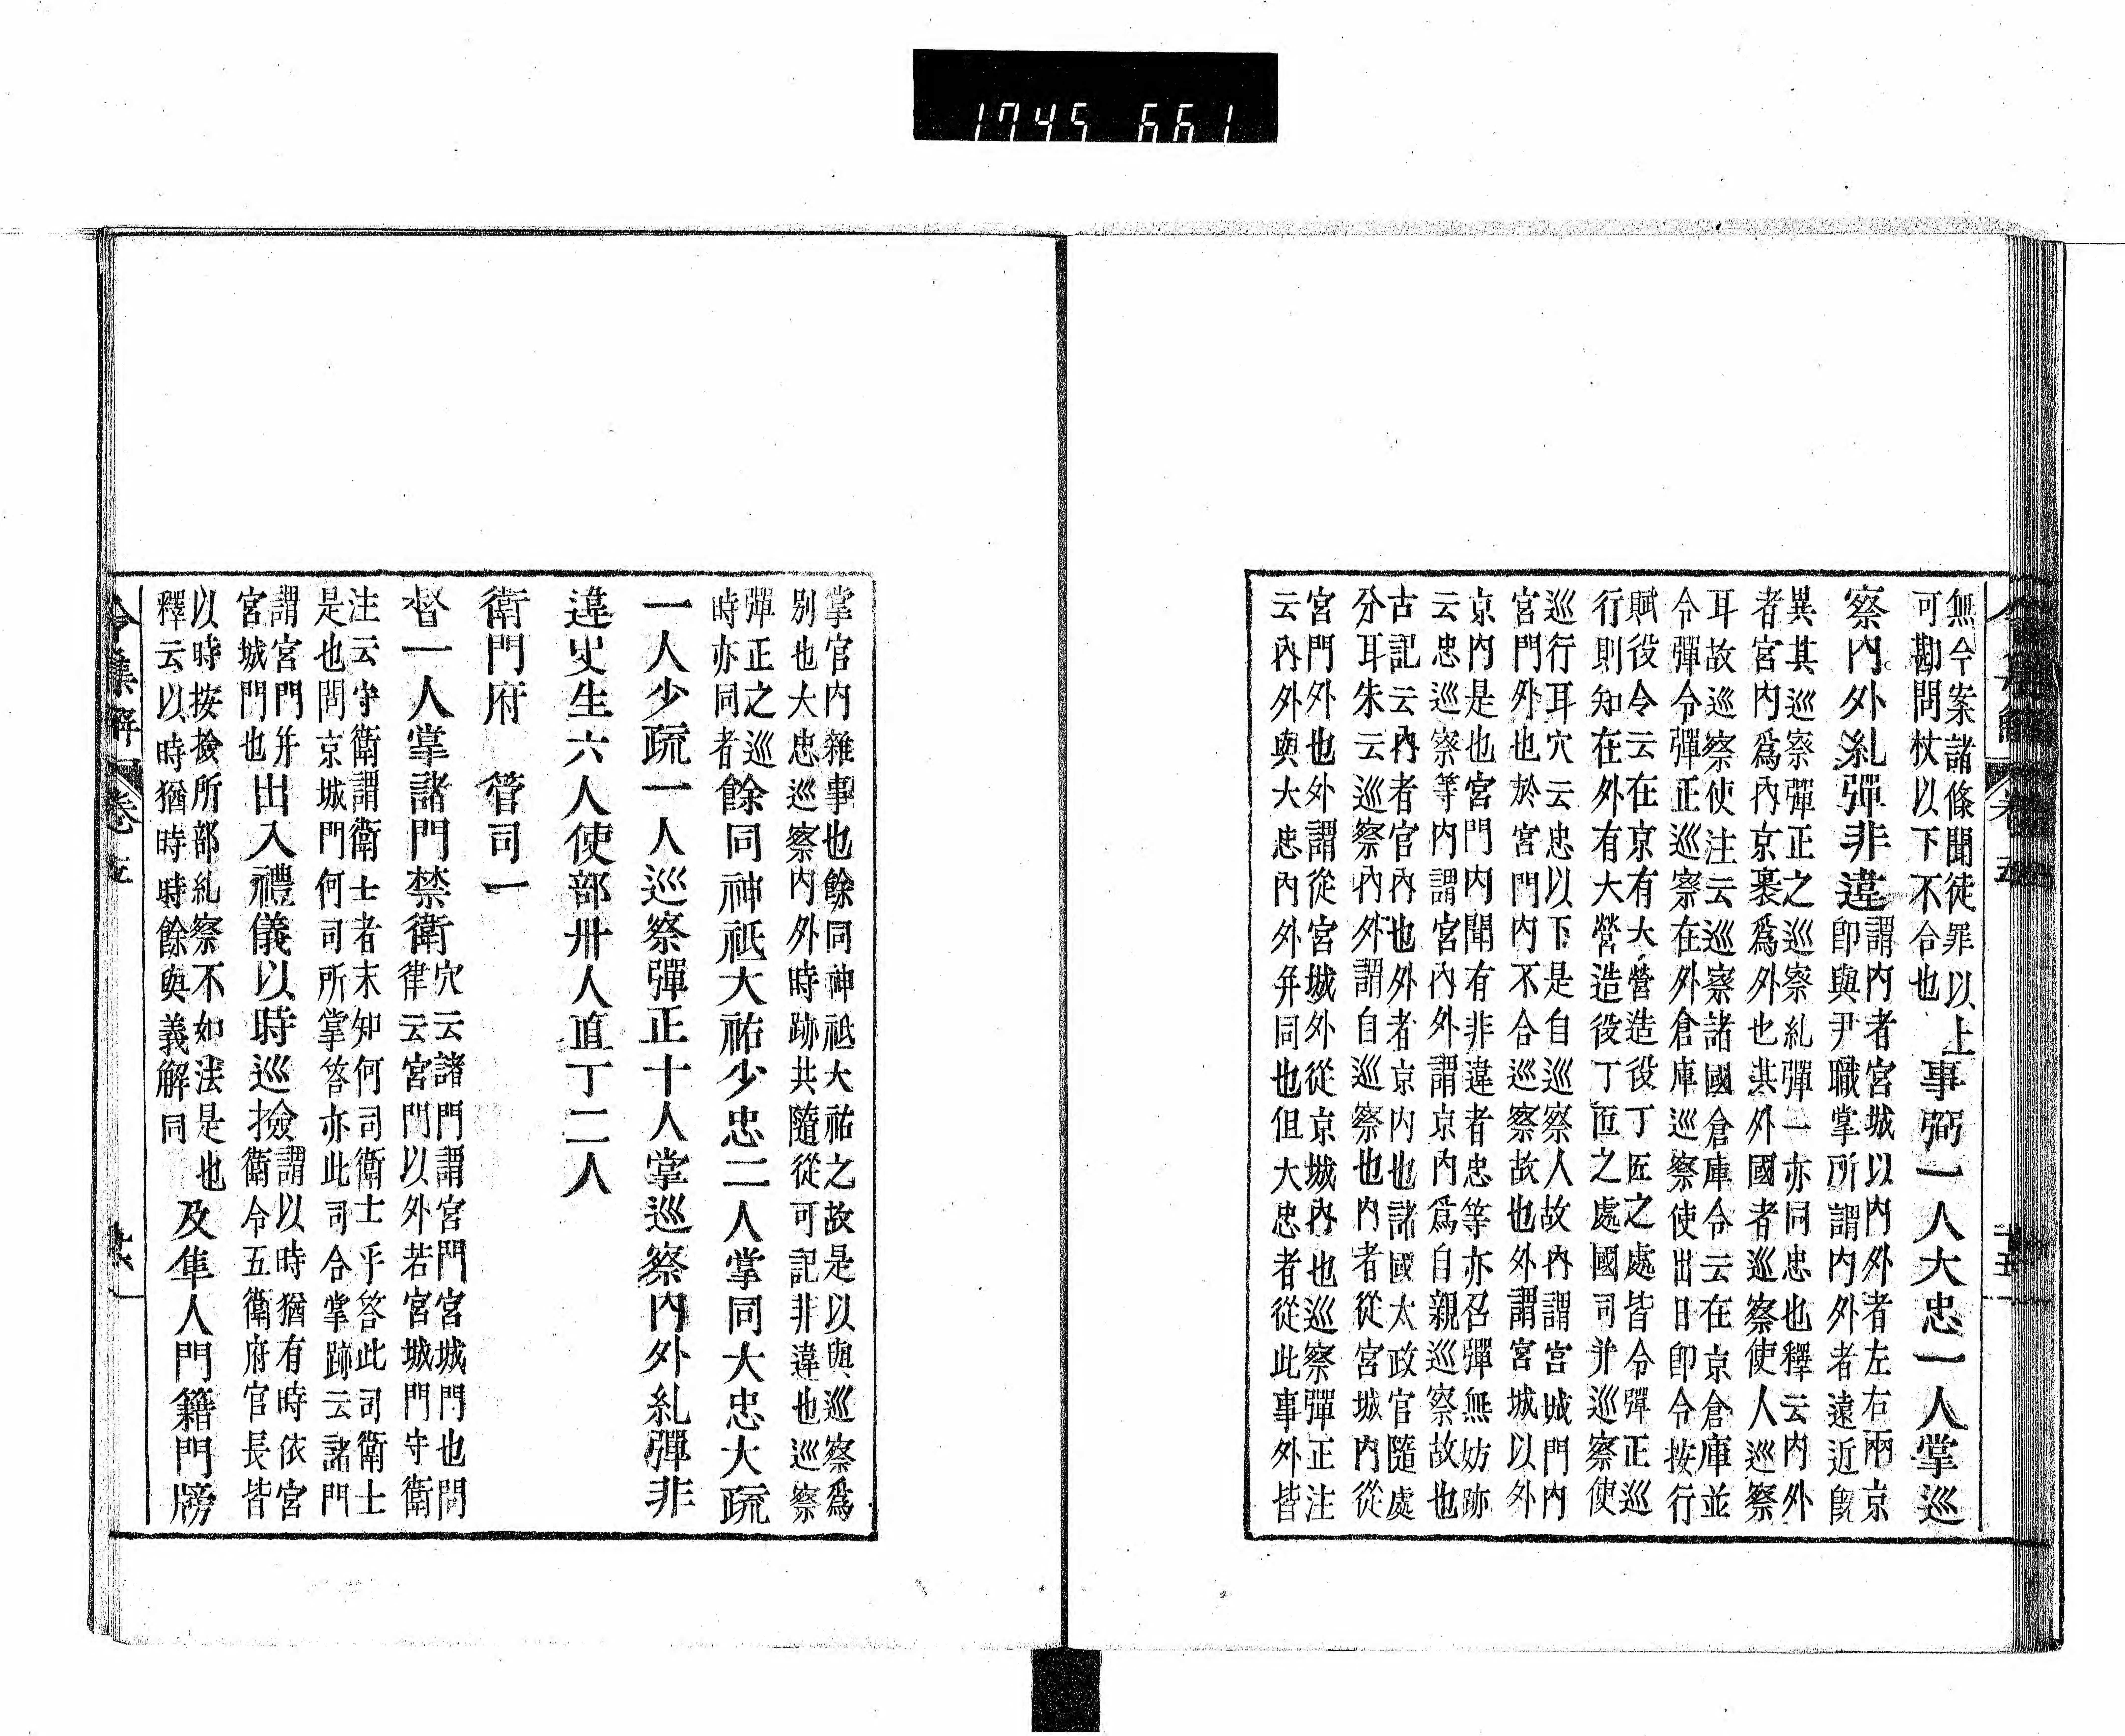 1745 661
無令案諸條聞徒罪以上
可勘問杖以下不合也
事弼一人大忠一人掌巡
察內外糺彈非違
謂內者宮城以內外者左右兩京
卽與尹職掌所謂內外者遠近旣
異其巡察彈正之巡察糺彈一亦同忠也釋云內外
者宮內爲內京裹爲外也其外國者巡察使人巡察
耳故巡察使注云巡察諸國倉庫令云在京倉庫並
令彈令彈正巡察在外倉庫巡察使出日卽令按行
賦役令云在京有大營造役丁匠之處皆令彈正巡
行則知在外有大營造役丁匠之處國司并巡察使
巡行耳穴云忠以下是自巡察人故內謂宮城門內
宮門外也於宮門內不合巡察故也外謂宮城以外
京內是也宮門內聞有非違者忠等亦召彈無妨跡
云忠巡察等內謂宮內外謂京內爲自親巡察故也
古記云內者官內也外者京內也諸國太政官隨處
分耳朱云巡察內外謂自巡察也內者從宮城內從
宮門外也外謂從宮城外從京城內也巡察彈正注
云內外與大忠內外并同也但大忠者從此事外皆
令集解 卷五 二十五
掌官內雜事也餘同神祇大祐之故是以與巡察爲
別也大忠巡察內外時跡共隨從可記非違也巡察
彈正之巡
時亦同者
餘同神祇大祐少忠二人掌同大忠大疏
一人少疏一人巡察彈正十人掌巡察內外糺彈非
違史生六人使部卅人直丁二人
衛門府 管司一
督一人掌諸門禁衛
穴云諸門謂宮門宮城門也問
律云宮門以外若宮城門守衛
注云守衛謂衛士者未知何司衛士乎答此司衛士
是也問京城門何司所掌答亦此司合掌跡云諸門
謂宮門并
宮城門也
出入禮儀以時巡撿
謂以時猶有時依宮
衛令五衛府官長皆
以時按撿所部糺察不如法是也
釋云以時猶時時餘與義解同
及隼人門籍門牓
令集解 卷五 廿六